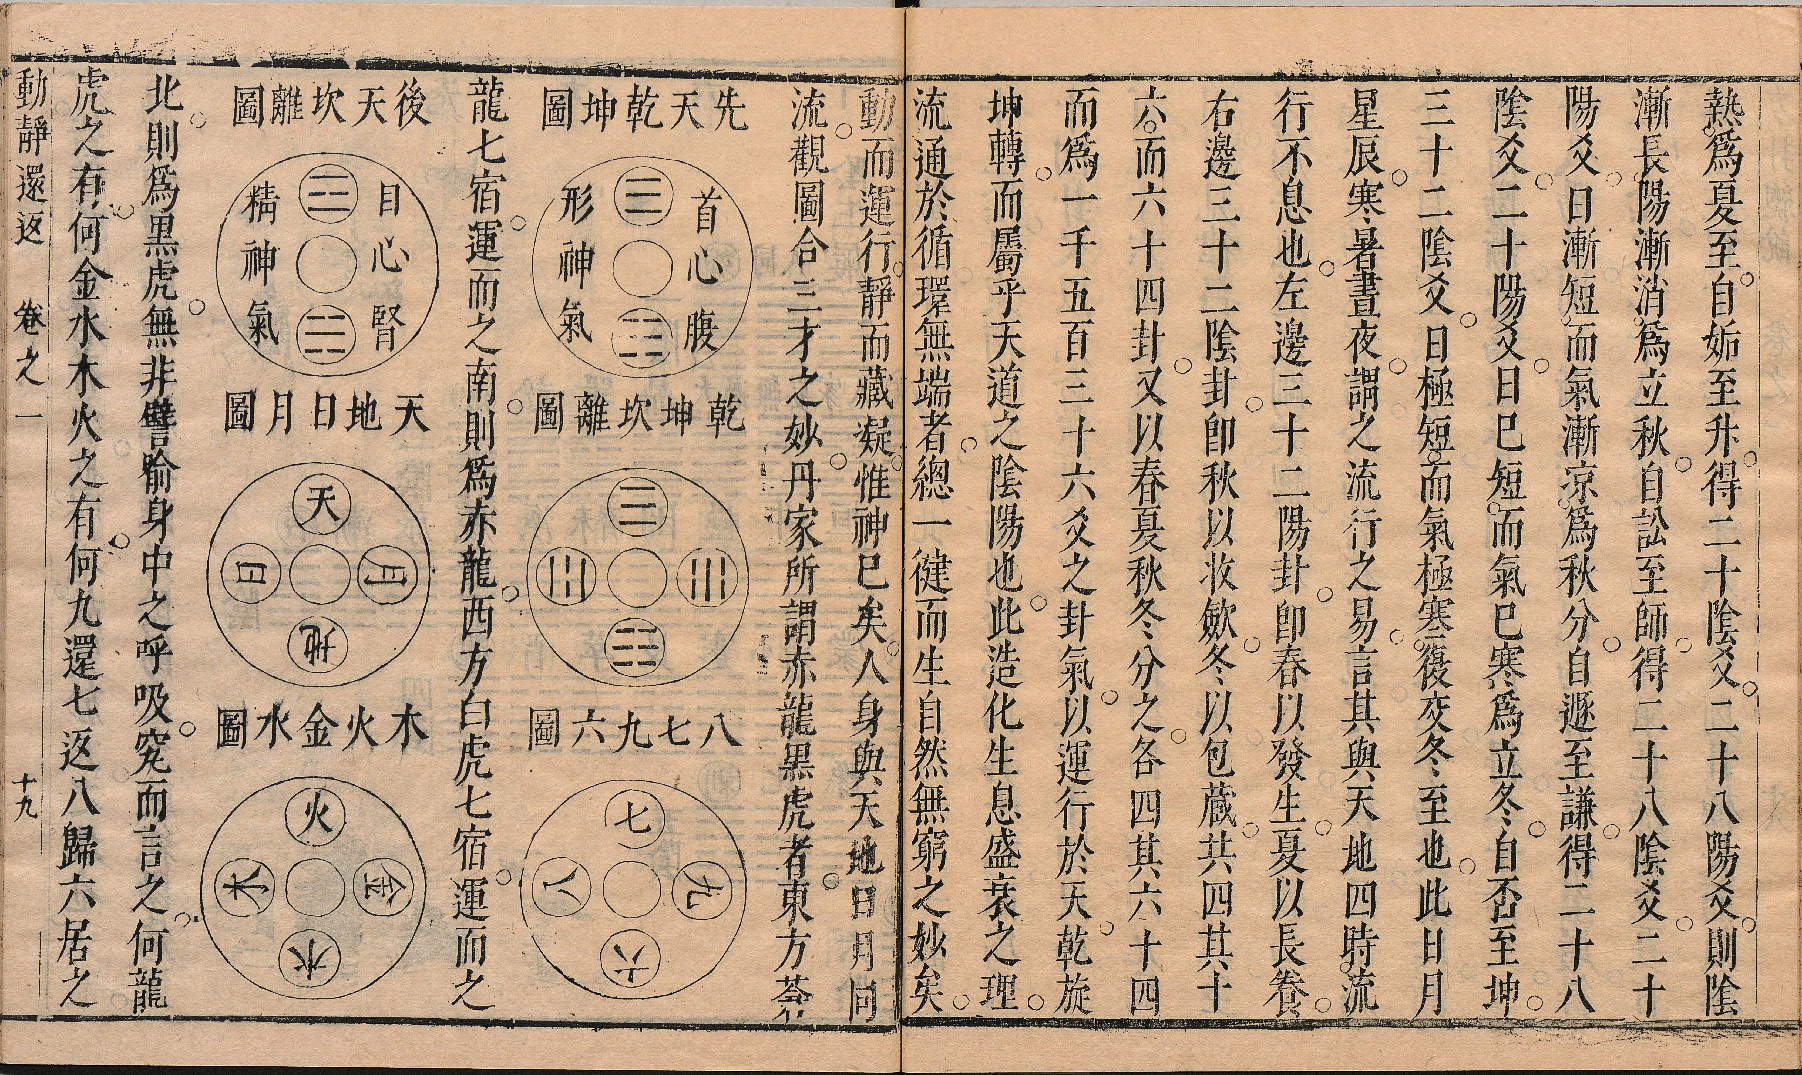 熱爲夏至自姤至升得二十陰爻二十八陽爻則陰
漸長陽漸消爲立秋自訟至師得二十八陰爻二十
陽爻日漸短而氣漸凉爲秋分自遯至謙得二十八
陰爻二十陽爻日巳短而氣巳寒爲立冬自否至坤
三十二陰爻日極短而氣極寒復交冬至也此日月
星辰寒暑晝夜謂之流行之易言其與天地四時流
行不息也左邊三十二陽卦卽春以發生夏以長養
右邊三十二陰卦卽秋以收斂冬以包藏共四其十
六而六十四卦又以春夏秋冬分之各四其六十四
而爲一千五百三十六爻之卦氣以運行於天乾旋
坤轉而屬乎天道之陰陽也此造化生息盛衰之理
流通於循環無端者總一徤而生自然無窮之妙矣
動而運行靜而藏凝惟神巳矣人身與天地日月同
流觀圖合三才之妙丹家所謂赤龍黑虎者東方蒼
先天乾坤圖
首心腹
☰
☷
形神氣
乾坤坎離圖
☰
☵
☲
☷
八七九六圖
七
九
八
六
龍七宿運而之南則爲赤龍西方白虎七宿運而之
後天坎離圖
目心腎
☲
☵
精神氣
天地日月圖
天
月
日
地
木火金水圖
火
金
木
水
北則爲黑虎無非譬喻身中之呼吸究而言之何龍
虎之有何金水木火之有何九還七返八歸六居之
動靜還返 卷之一 十九